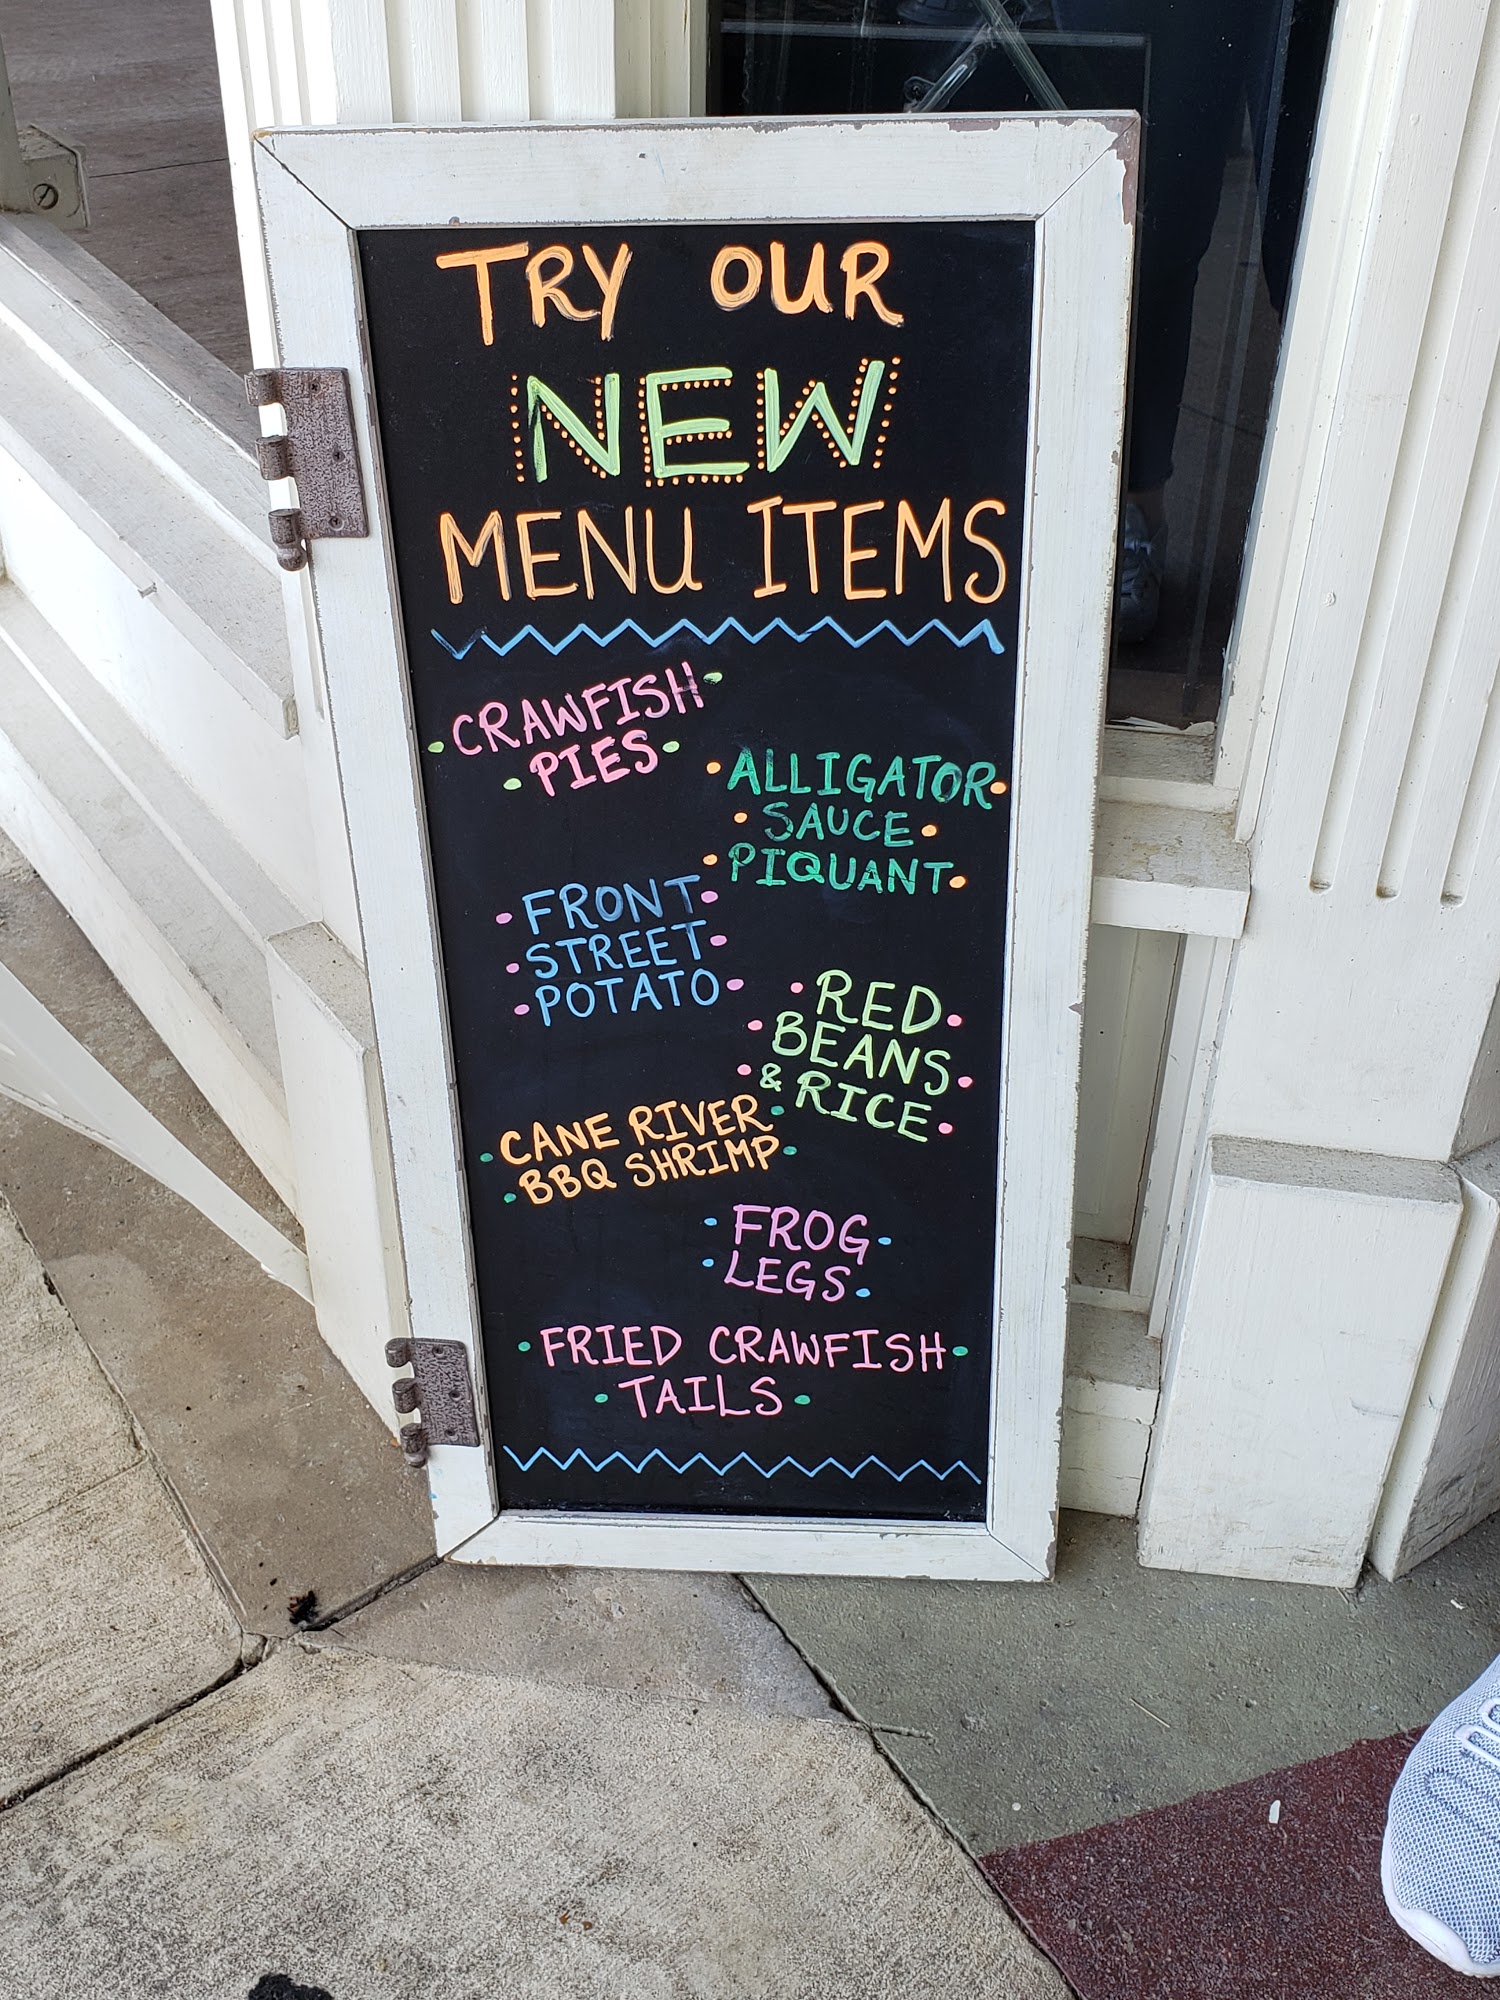 TRY OUR
NEW
MENU ITEMS
CRAWFISH
PIES
ALLIGATOR
SAUCE
PIQUANT
FRONT
STREET
POTATO
RED
BEANS
& RICE
CANE RIVER
BBQ SHRIMP
FROG
LEGS
FRIED CRAWFISH
TAILS